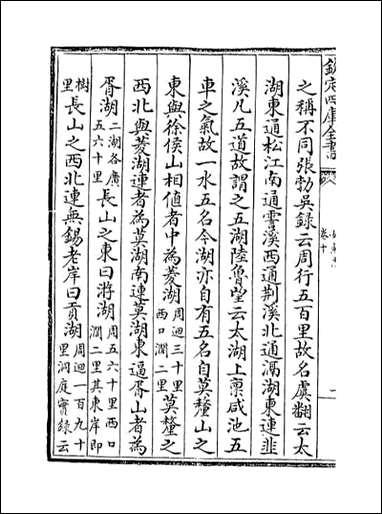 欽定四庫全書
卷十
之稱不同張勃吳録云周行五百里故名虞翻云太
湖東通松江南通霅溪西通荆溪北通滆湖東連韭
溪凡五道故謂之五湖陸魯望云太湖上禀咸池五
車之氣故一水五名今湖亦自有五名自莫釐山之
東與徐侯山相值者中為菱湖周迴三十里西口濶二里莫釐之
西北與菱湖連者為莫湖南連莫湖東逼胥山者為
胥湖二湖各廣五六十里長山之東曰游湖周五六十里西口濶二里其東岸即
樹里長山之西北連無錫老岸曰貢湖周迴一百九十里洞庭實録云